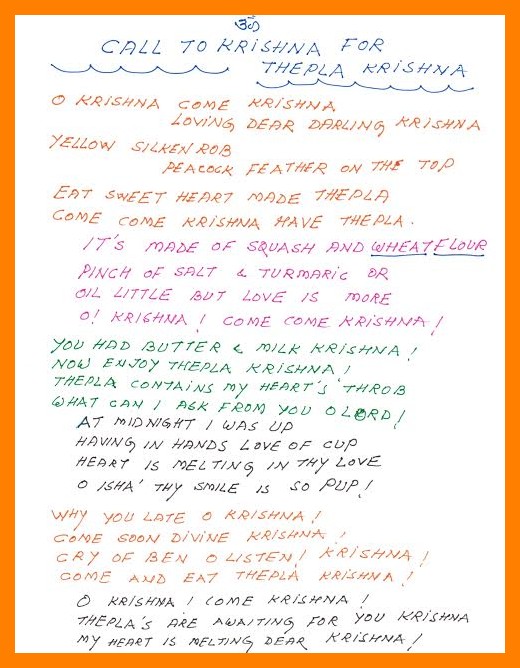 ૐ
CALL TO KRISHNA FOR
THEPLA KRISHNA
O KRISHNA COME KRISHNA
LOVING DEAR DARLING KRISHNA
YELLOW SILKEN ROB
PEACOCK FEATHER ON THE TOP
EAT SWEET HEART MADE THEPLA
COME COME KRISHNA HAVE THEPLA.
IT'S MADE OF SQUASH AND WHEAT FLOUR
PINCH OF SALT & TURMARIC OR
OIL LITTLE BUT LOVE IS MORE
O! KRISHNA! COME COME KRISHNA!
YOU HAD BUTTER & MILK KRISHNA!
NOW ENJOY THEPLA KRISHNA!
THEPLA CONTAINS MY HEART'S THROB
WHAT CAN I ASK FROM YOU O LORD!
AT MIDNIGHT I WAS UP
HAVING IN HANDS LOVE OF CUP
HEART IS MELTING IN THY LOVE
O ISHA' THY SMILE IS SO PUP!
WHY YOU LATE O KRISHNA!
COME SOON DIVINE KRISHNA!
CRY OF BEN O LISTEN! KRISHNA!
COME AND EAT THEPLA KRISHNA!
O KRISHNA! COME KRISHNA!
THEPLA'S ARE AWAITING FOR YOU KRISHNA
MY HEART IS MELTING DEAR KRISHNA!